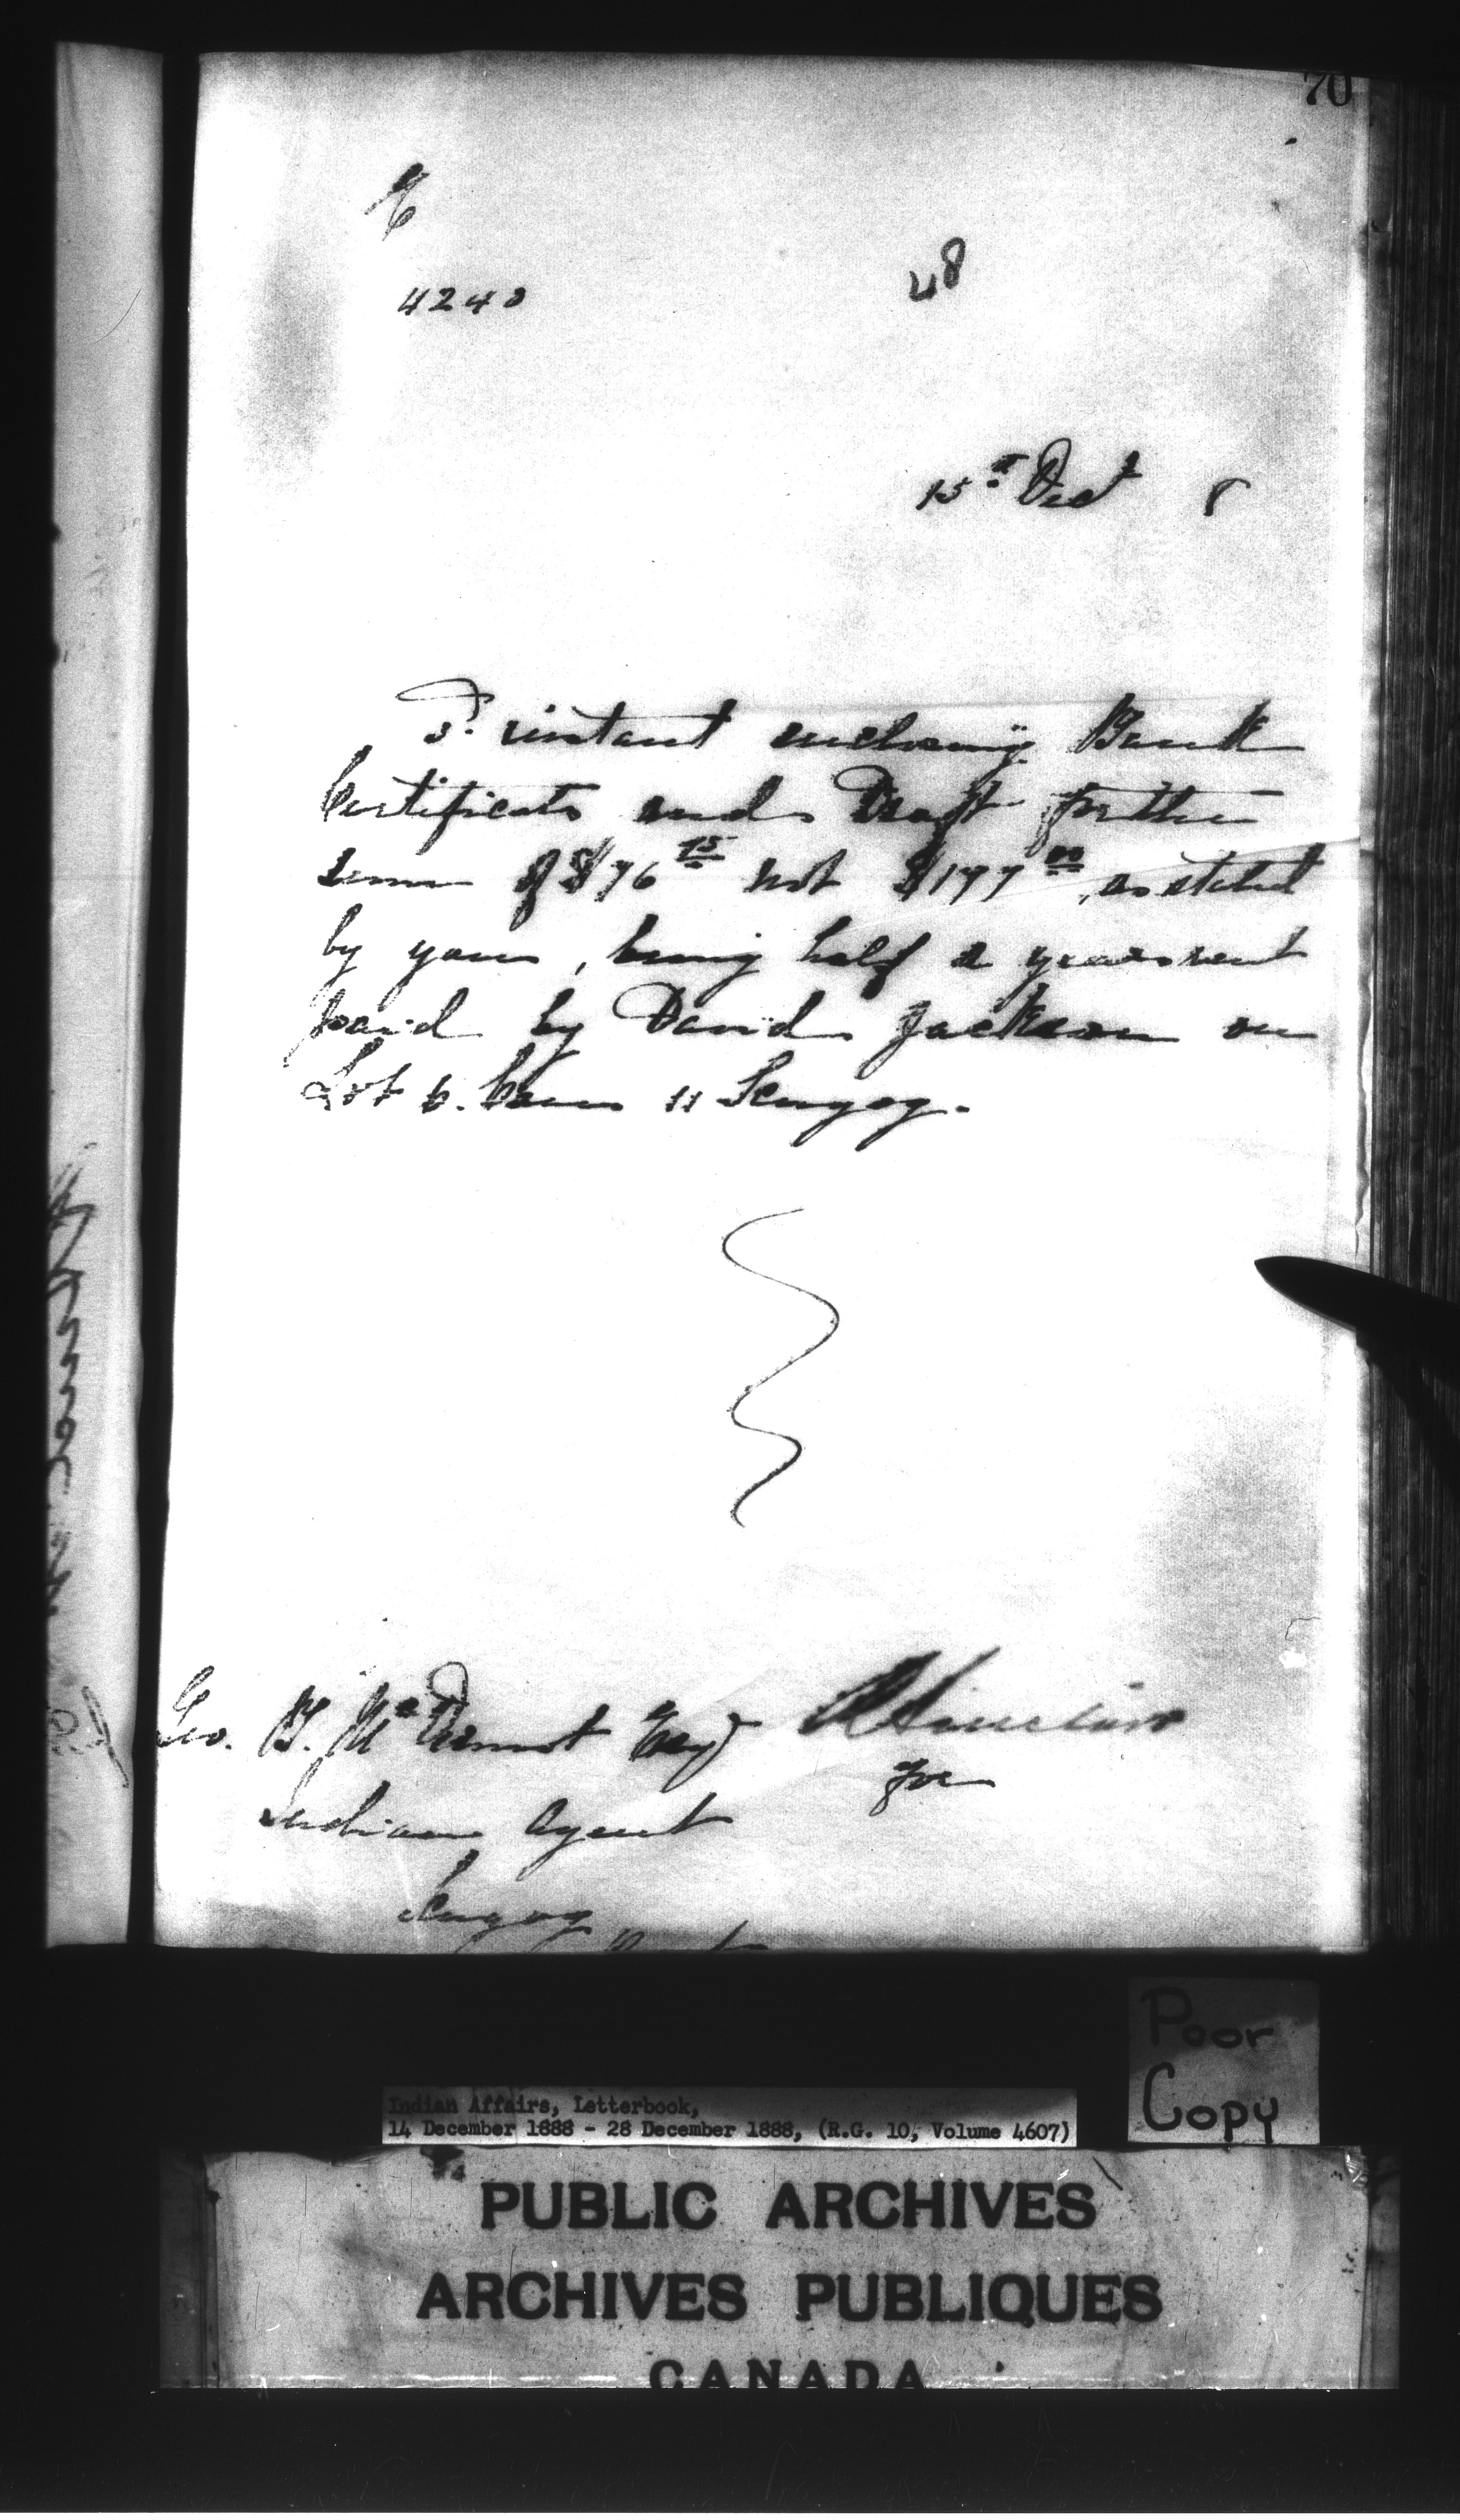 70
4248
48
15th Dect 8
instant enclosing Bank
Certificate and Draft for the
sum of $76 75 not $177 00, as stated
by you, being half a years rent
paid by David Jackson on
Lot 6. Con 11 Scugog.
Geo. B. McDermot Esq R Sinclair
for
Indian Agent
Scugog
Poor
Copy
Indian Affairs, Letterbook,
14 December 1888 - 28 December 1888, (R.G. 10, Volume 4607)
PUBLIC ARCHIVES
ARCHIVES PUBLIQUES
CANADA